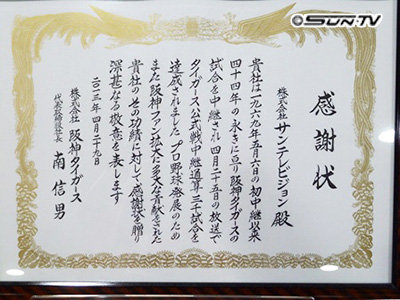 SUN-TV
感謝状
株式会社
サンテレビジョン 殿
貴社は一九六九年五月六日の初中継以来
四十四年の永きに亘り阪神タイガースの
試合を中継され四月二十五日の放送で
タイガース公式戦中継通算三千試合を
達成されました プロ野球発展のため
また阪神ファン拡大に多大な貢献をされた
貴社のその功績に対して 感謝状を贈り
深甚なる敬意を表します
二〇一三年四月二十九日
株式会社 阪神タイガース
代表取締役社長 南 信男